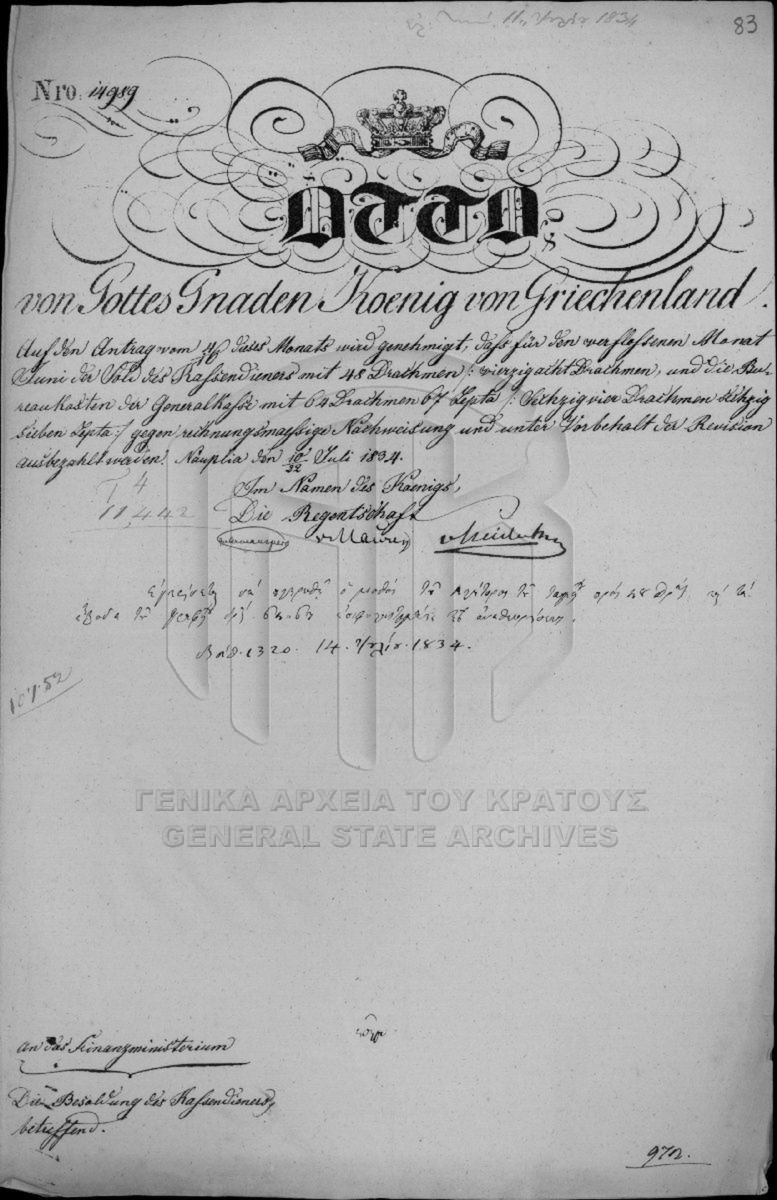 11 Ἰουλίου 1834
83
Nro. 14989
OTTO
von Gottes Gnaden Koenig von Griechenland.
Auf den Antrag vom 4/16 dieses Monats wird genehmigt, dass für den verflossenen Monat
Juni der Sold des Kassendieners mit 48 Drachmen /: vierzig acht Drachmen, und die Bu-
reaukosten der Generalkasse mit 64 Drachmen 67 Lepta /: Sechzig vier Drachmen sechzig
sieben Lepta :/ gegen rechnungsmaessige Nachweisung und unter Vorbehalt der Revision
ausbezahlt werden. Nauplia den 10/22 Juli 1834.
Im Namen des Koenigs,
Die Regentschaft
11,442
v. Maurer v. Heideck
Ἐγκρίνεται νὰ πληρωθῇ ὁ μισθὸς τοῦ
ἔξοδα τοῦ
1320. 14. Ἰουλίου. 1834.
107.52
An das Finanzministerium
Die Besoldung des Kassendieners,
betreffend.
972.